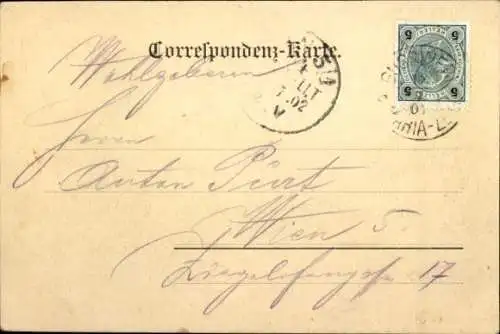 Correspondenz-Karte.
Wohlgeboren
Herrn
Anton
Wien 5.
Ziegelofengasse 17
5 5
5 5